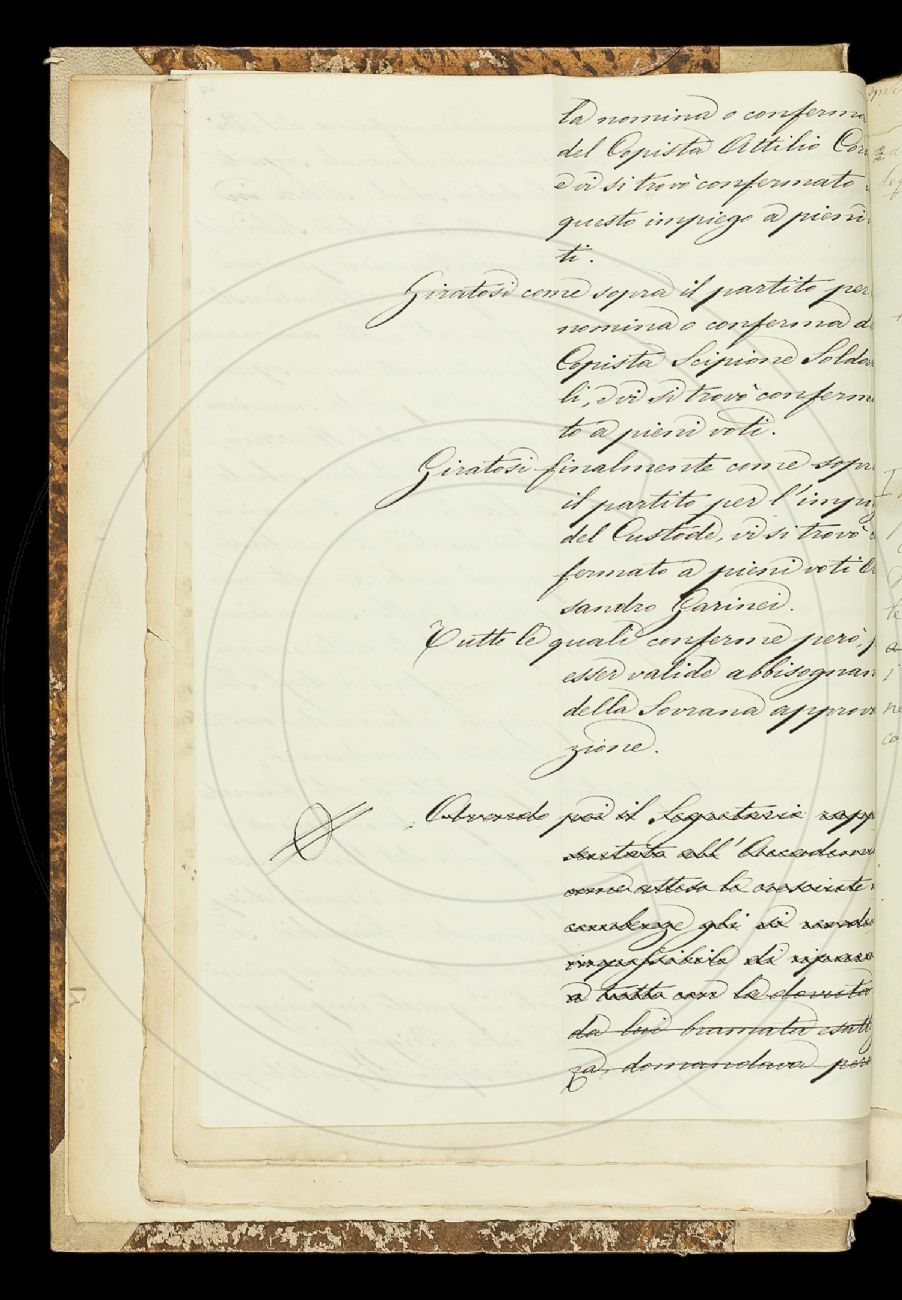 la nomina o conferma
del Copista Attilio Cor
e vi si trovò confermato
questo impiego a pieni
ti.
Giratosi come sopra il partito per
nomina o conferma d
Copista Scipione Soldo
li, e vi si trovò conferm
to a pieni voti.
Giratosi finalmente come sopr
il partito per l'impi
del Custode, vi si trovò
fermato a pieni voti
sandro Garinei.
Tutte le quali conferme però,
esser valide abbisognan
della Sovrana approv
zione.
Avendo poi il Segretario rapp
sentato all' Accademi
come attesa le cresciute
gli si rende
impossibile di
a tutto con la dovuta
da lui bramata esatt
za domandava per